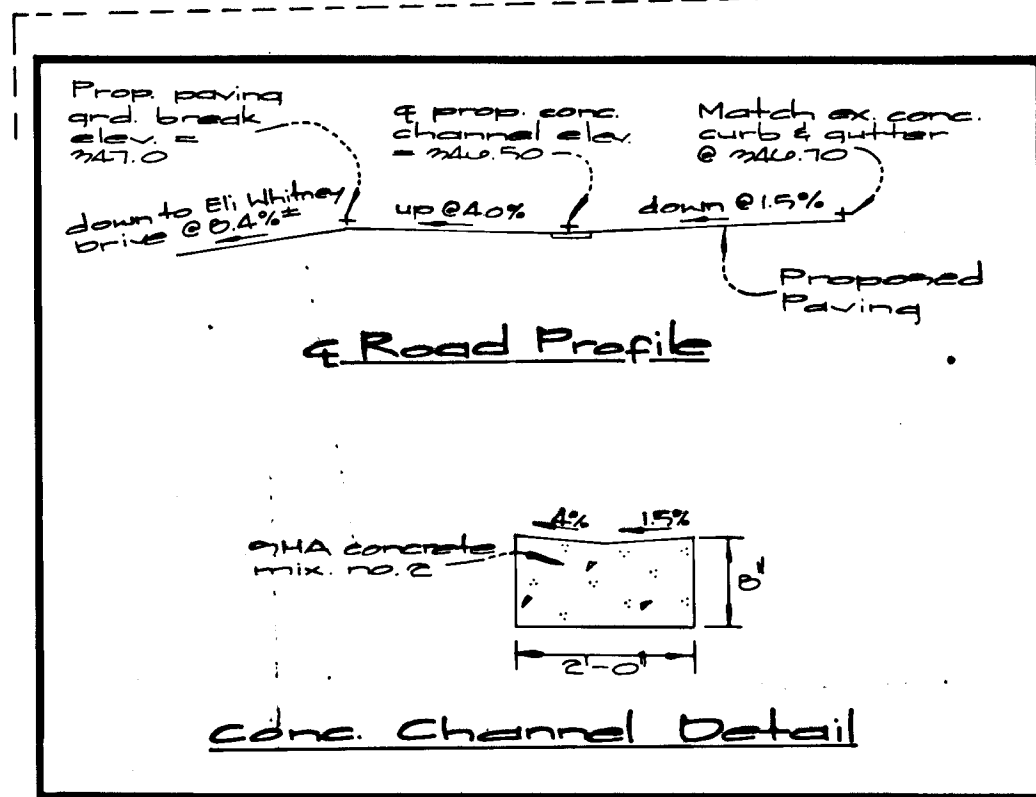 Prop. paving
grd. break
elev. =
347.0
℄ prop. conc.
channel elev.
= 346.50
Match ex. conc.
curb & gutter
@ 346.70
down to Eli Whitney
Drive @ 8.4%±
up @ 4.0%
down @ 1.5%
Proposed
Paving
℄ Road Profile
4%
1.5%
SHA concrete
mix. no. 2
8"
2'-0"
Conc. Channel Detail